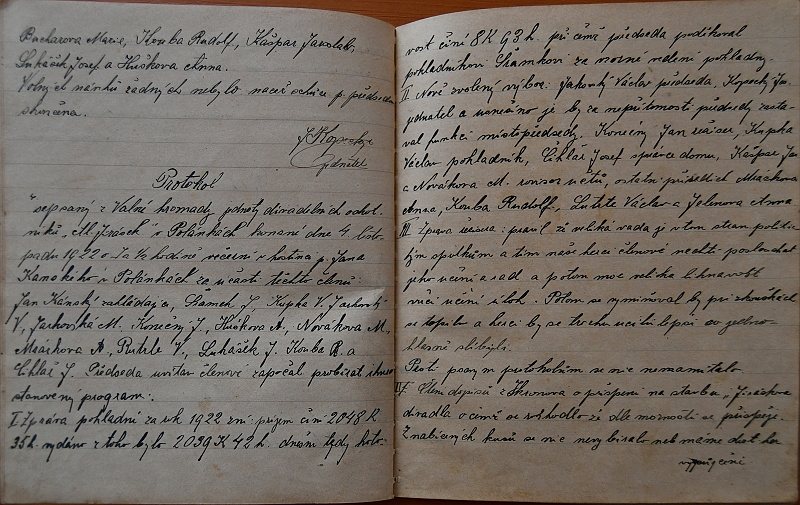 Bucharova Marie, Kouba Rudolf, Kašpar Jaroslav,
Lukášek Josef a Huškova Anna.
Volných návrhů žádných nebylo načež schůze p. předsedou
skončena.
J Kopecký
jednatel
Protokol
sepsaný z Valné hromady jednoty divadelních ochot-
níků „Al. Jirásek" v Polánkách konané dne 4. listo-
padu 1922 o ½ hodině večerní v hostinci p. Jana
Kanského v Polánkách za účasti těchto členů:
Jan Kánský zakládající, Šámek J, Kupka V, Jachovský
V, Jachovská M. Konečný J., Huškova A., Nováková M,
Macákova A, Rutrle V., Lukášek J. Kouba R. a
Cihlář J. Předseda uvítav členové započal probírat ihned
stanovený program:
I Zpráva pokladní za rok 1922 zní: příjem činí 2048 K
35 h. vydáno z toho bylo 2039 K 42 h. dnešní tedy hoto-
vost činí 8 K 93 h. při čemž předseda poděkoval
pokladníkovi Šámkovi za vzorné vedení pokladny.
II Nově zvolený výbor: Václav předseda, Kopecký Jan
jednatel a usnešeno je by za nepřítomosti předsedy zastá-
val funkci místopředsedy. Konečný Jan režiser, Kupka
Václav pokladník, Cihlář Josef správce domu, Kašpar Jar
a Nováková M. revisoř účtů, ostatní přísedící Macákova
Anna, Kouba Rudolf, Václav a Anna
III. Zpráva režisera: pravil že veliká vada je v tom stran politic-
kým spolkům a tím naše herci členové nechtí poslouchat
jeho učení a rad a potom moc veliká lhostejnost
vůči učení úloh. Potom se vyminoval by při zkouškách
se topilo a herci by se trochu učili lépší co jedno-
hlasně slíbili.
Proti psaným protokolům se nic nenamítalo.
IV. Čtení dopisů z Hronova o přispění na stavbu „Jiráskova
divadla o čemž se rozhodlo že dle možnosti se přispěje.
Z nabízených kusů se nic nevybíralo neb máme dost her